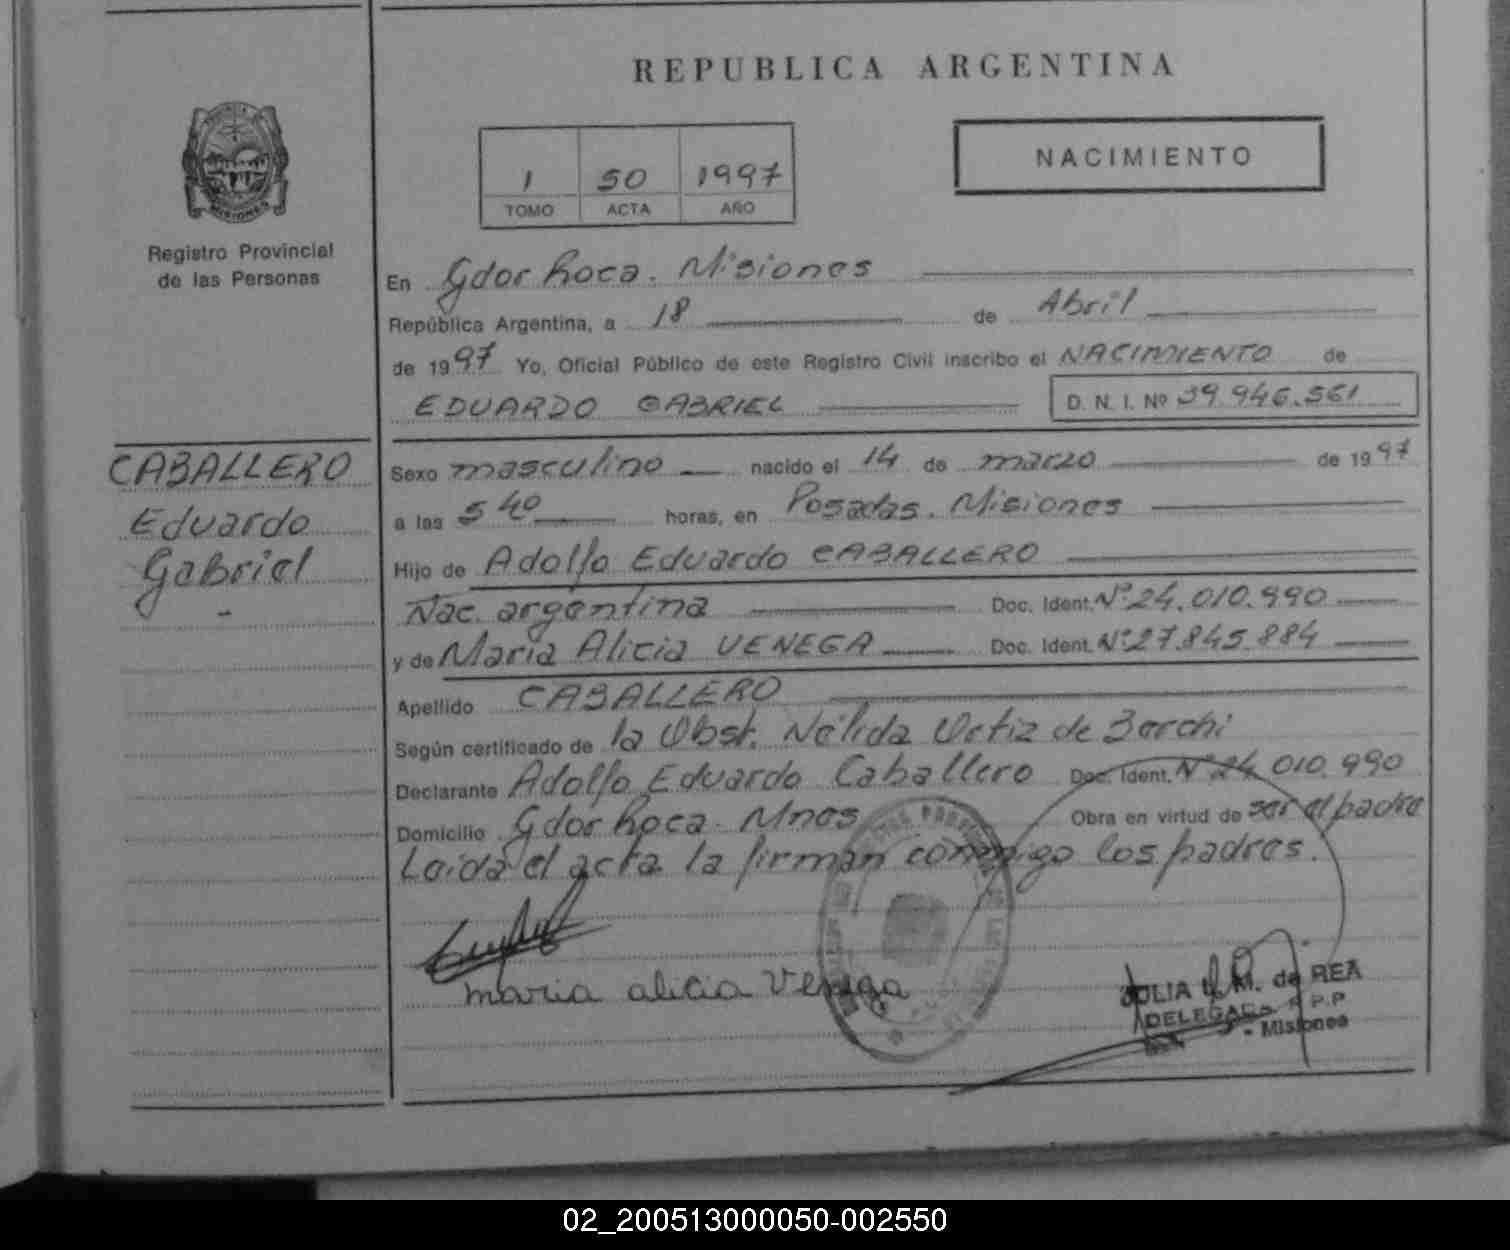 REPUBLICA ARGENTINA
MISIONES
Registro Provincial
de las Personas
1 50 1997
TOMO ACTA AÑO
NACIMIENTO
En Gdor Roca. Misiones
República Argentina, a 18 de Abril
de 1997 Yo, Oficial Público de este Registro Civil inscribo el NACIMIENTO de
EDUARDO GABRIEL D. N. I. Nº 39.946.561
CABALLERO
Eduardo
Gabriel
Sexo masculino nacido el 14 de marzo de 1997
a las 5 40 horas, en Posadas. Misiones
Hijo de Adolfo Eduardo CABALLERO
Nac. argentina Doc. Ident. Nº 24.010.990
y de Maria Alicia VENEGA Doc. Ident. Nº 27.845.884
Apellido CABALLERO
Según certificado de la Obst. Nélida Ortiz de Borchi
Declarante Adolfo Eduardo Caballero Doc. Ident. Nº 24.010.990
Domicilio Gdor Roca. Mnes Obra en virtud de ser el padre
Leida el acta la firman conmigo los padres.
maria alicia Venega
JULIA M. de REA
DELEGADA R.P.P
- Misiones
02_200513000050-002550